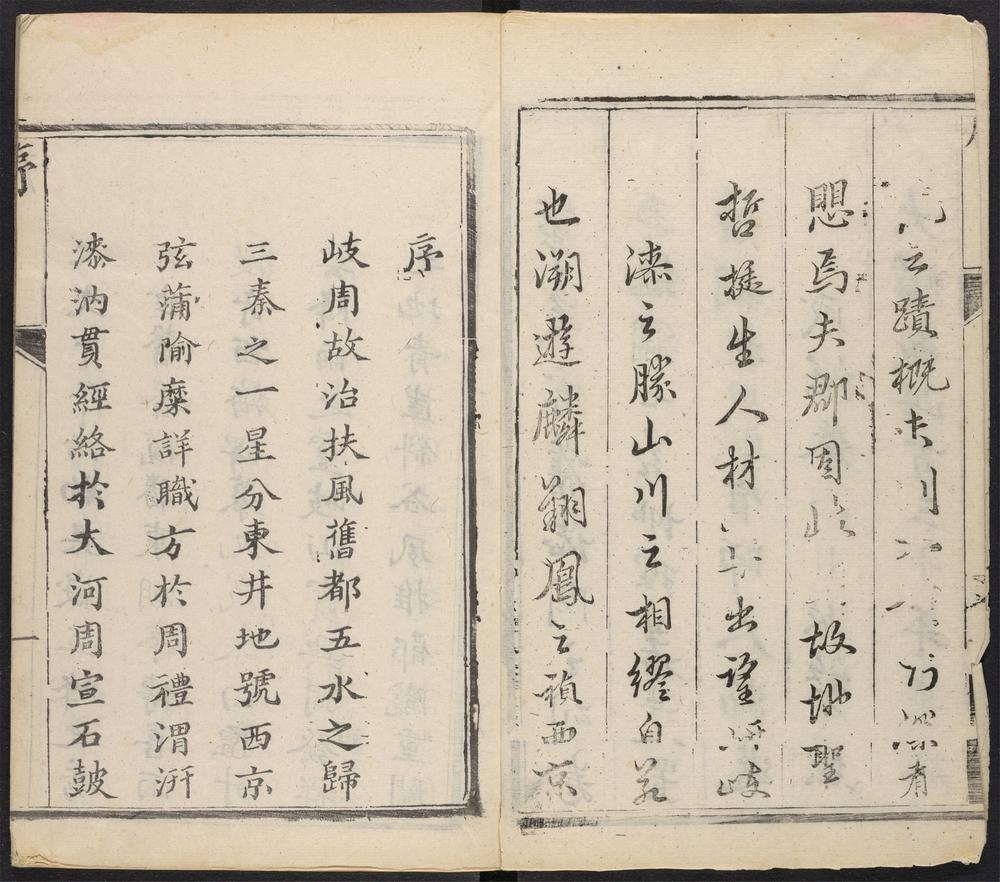 之蹟概
愳焉夫郡固 故地聖
哲挺生人材 出望 岐
漆之勝山川之相繆自
也溯遊麟翔鳳之禎西京
序
岐周故治扶風舊都五水之歸
三秦之一星分東井地號西京
弦蒲隃糜詳職方於周禮渭汧
漆汭貫經絡於大河周宣石鼓
序
一